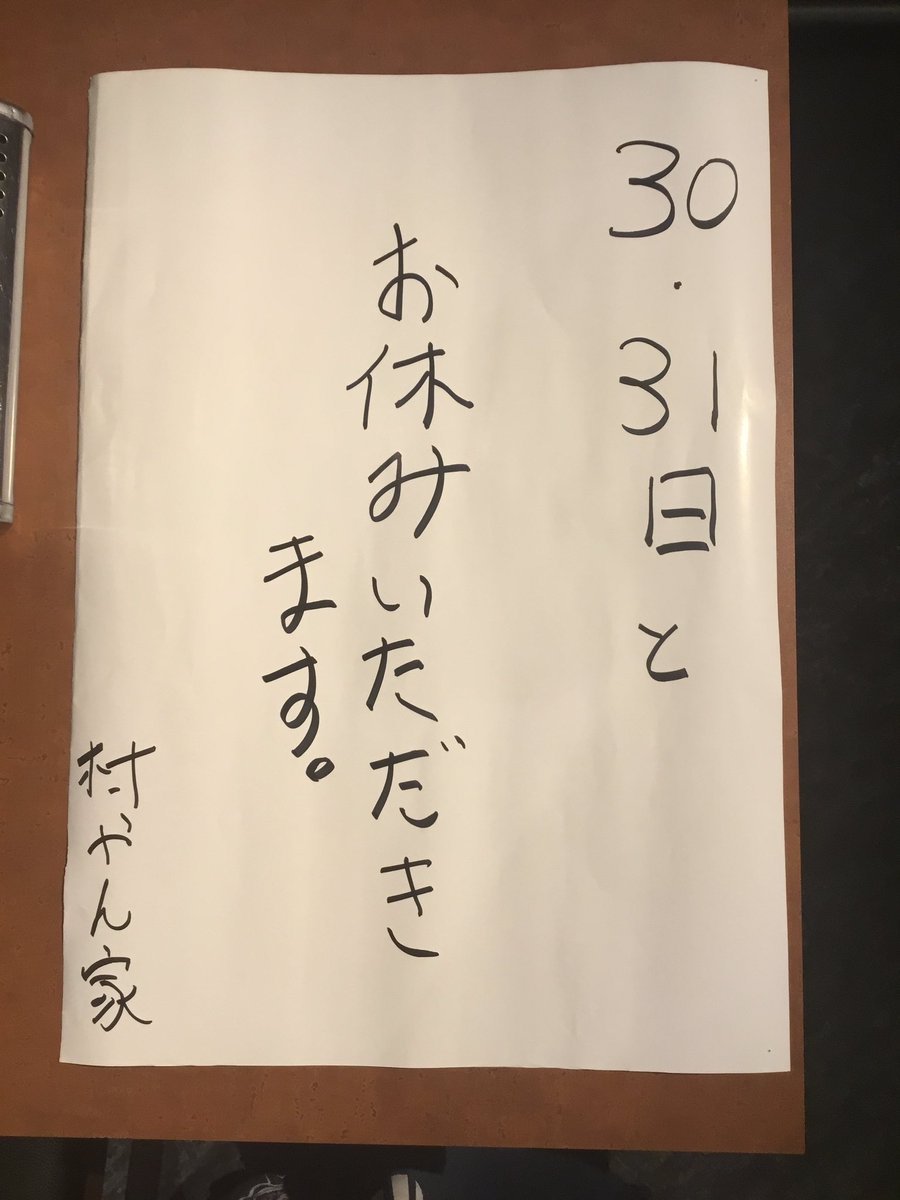 30・31日と
お休みいただき
ます。
村やん家